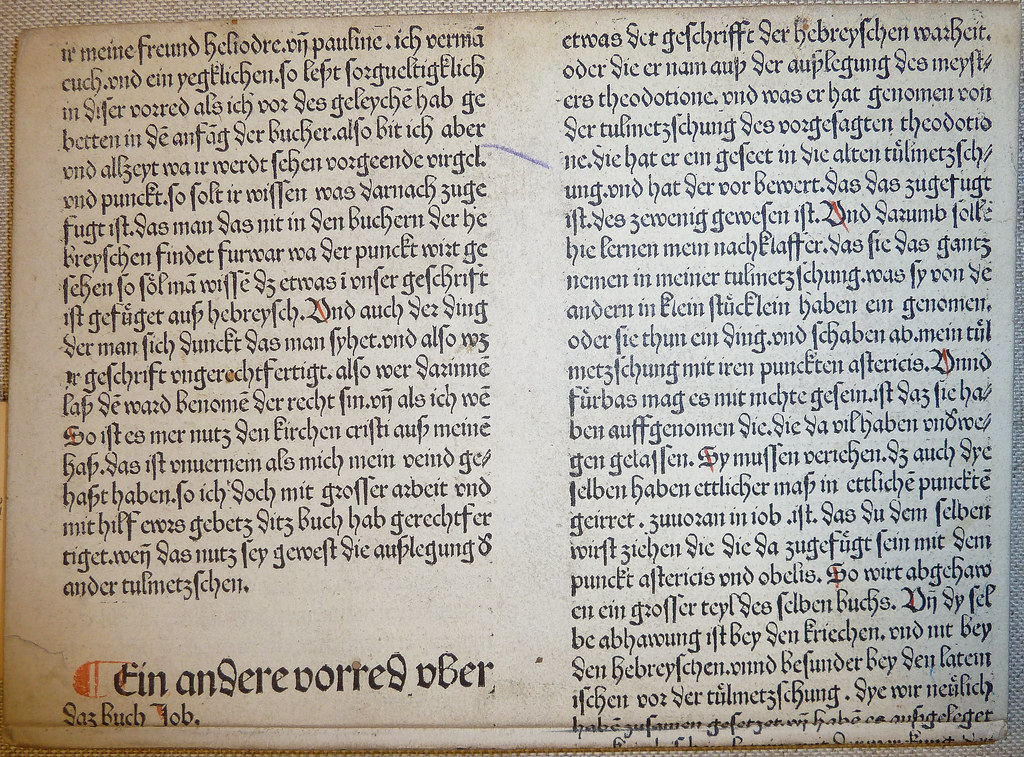 ir meine freund heliodre.vñ pauline.ich vermã
euch.vnd ein yegklichen.so leßt sorgueltigklich
in diser vorred als ich vor des geleychẽ hab ge
betten in dẽ anfãg der bucher.also bit ich aber
vnd allzeyt wa ir werdt sehen vorgeende virgel.
vnd punckt.so solt ir wissen was darnach zuge
fugt ist.das man das nit in den buchern der he
breyschen findet furwar wa der punckt wirt ge
sehen so söl mã wissẽ dz etwas ĩ vnser geschrift
ist gefüget auß hebreysch.Vnd auch der ding
der man sich dunckt das man syhet.vnd also wz
ir geschrift vngerechtfertigt.also wer darinnẽ
laß dẽ ward benomẽ der recht sin.vñ als ich wẽ
So ist es mer nutz den kirchen cristi auß meinẽ
haß.das ist vnuernem als mich mein veind ge/
haßt haben.so ich doch mit grosser arbeit vnd
mit hilf ewrs gebetz ditz buch hab gerechtfer
tiget.weñ das nutz sey gewest die außlegung d
ander tulmetzschen.
Ein andere vorred vber
daz buch Job.
etwas der geschrifft der hebreyschen warheit.
oder die er nam auß der außlegung des meyst/
ers theodotione. vnd was er hat genomen von
der tulmetzschung des vorgesagten theodotio
ne.die hat er ein geseet in die alten tülmetzsch/
ung.vnd hat der vor bewert.das das zugefugt
ist.des zewenig gewesen ist.Vnd darumb söllẽ
hie lernen mein nachklaffer.das sie das gantz
nemen in meiner tulmetzschung.was sy von dẽ
andern in klein stücklein haben ein genomen.
oder sie thun ein ding.vnd schaben ab.mein tül
metzschung mit iren punckten astericis.Vnnd
fürbas mag es mit nichte gesein.ist daz sie ha/
ben auffgenomen die.die da vil haben vnderwe/
gen gelassen. Sy mussen veriehen.dz auch dye
selben haben ettlicher maß in ettlichẽ puncktẽ
geirret . zuuoran in iob .ist. das du dem selben
wirst ziehen die die da zugefügt sein mit dem
punckt astericis vnd obelis. So wirt abgehaw
en ein grosser teyl des selben buchs. Vñ dy sel
be abhawung ist bey den kriechen. vnd nit bey
den hebreyschen.vnnd besunder bey den latein
ischen vor der tülmetzschung . dye wir neülich
habẽ zusamen gesetzet.vñ habẽ es außgeleget